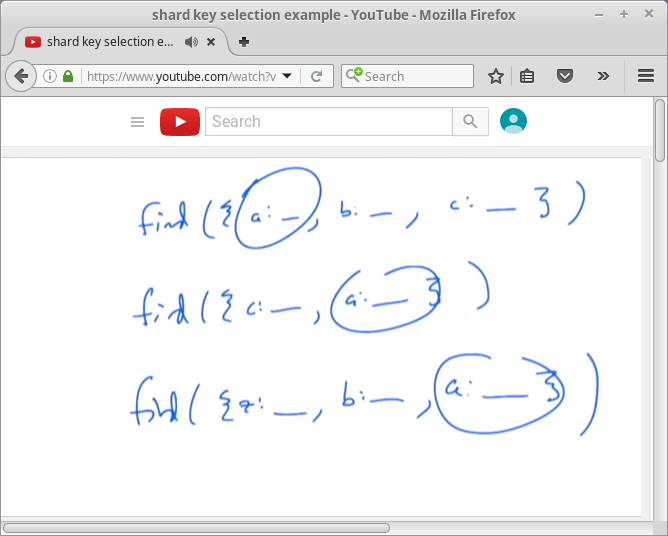 shard key selection example - YouTube - Mozilla Firefox
shard key selection e...
https://www.youtube.com/watch?v
Search
Search
find ({ a: __, b: __, c: __ })
find ({ c: __, a: __ })
find ({ z: __, b: __, a: __ })